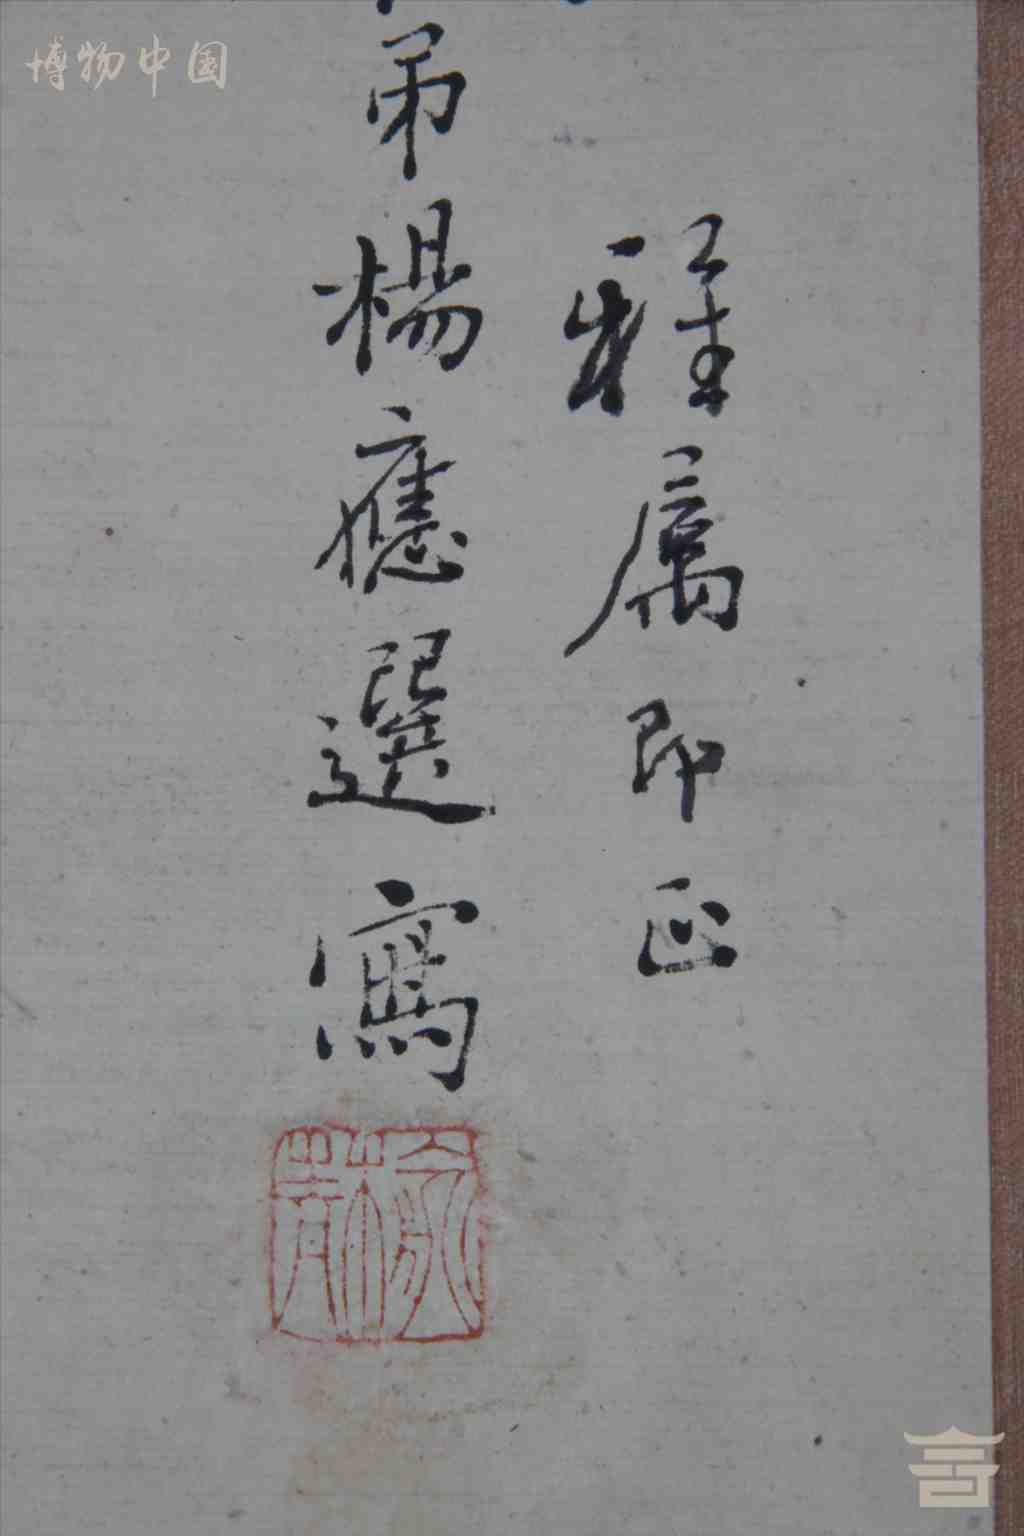 博物中国
雅属即正
弟楊應選寫